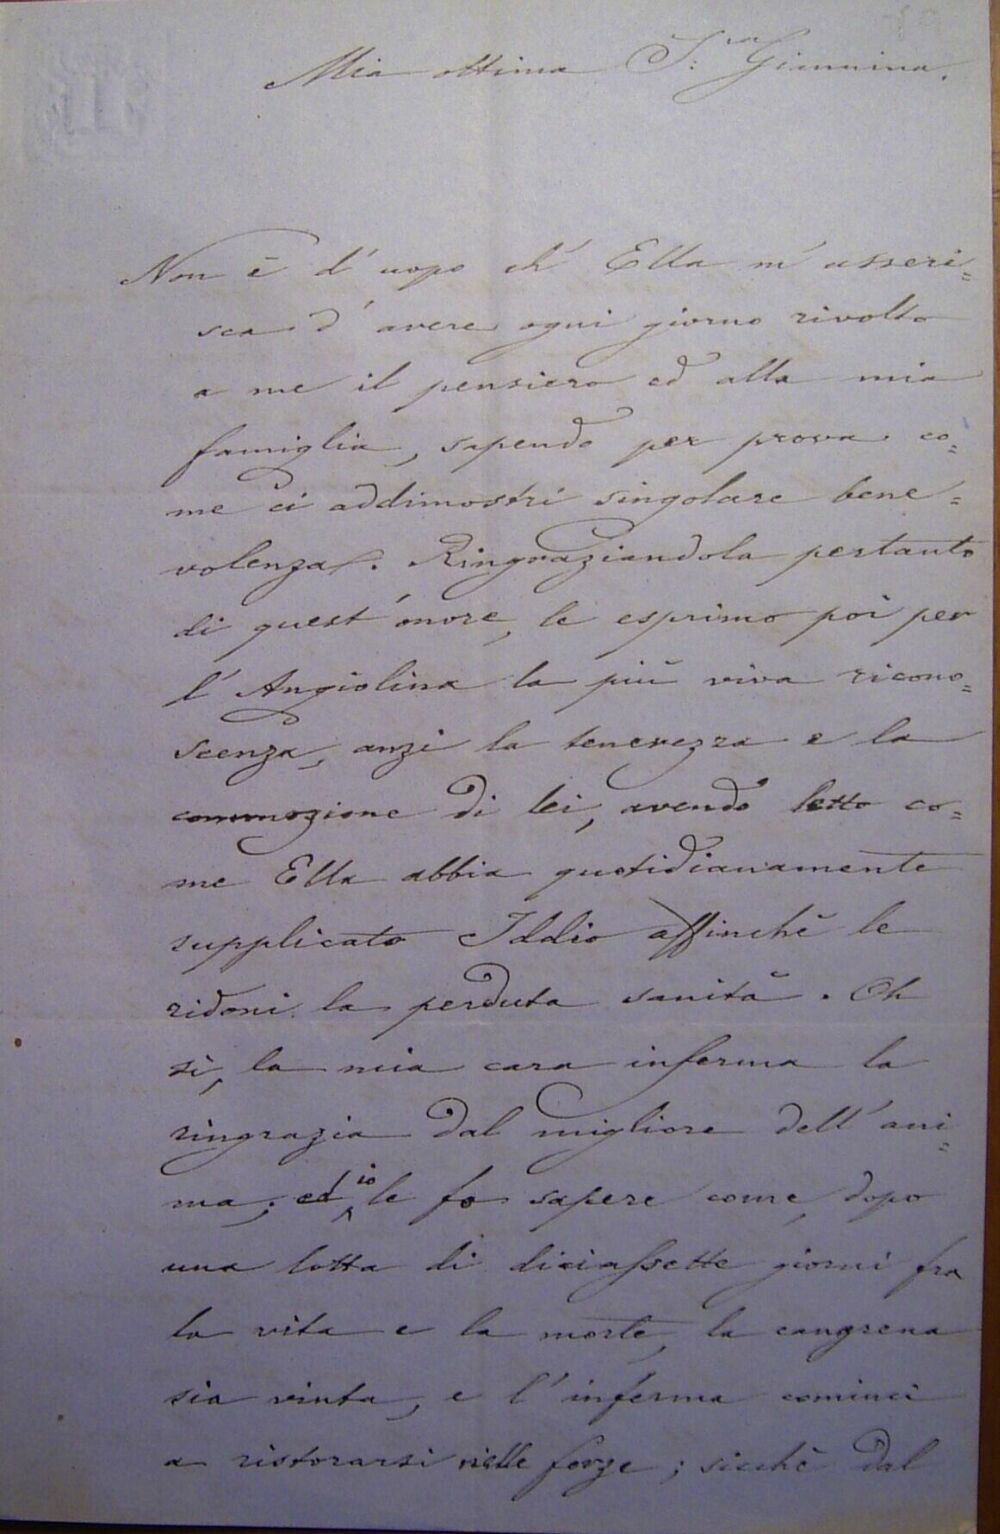 Mia ottima S.ra Giannina.
Non è d'uopo ch'Ella m'asseri=
sca d'avere ogni giorno rivolto
a me il pensiero ed alla mia
famiglia, sapendo per prova co=
me ci addimostri singolare bene=
volenza. Ringraziandola pertanto
di quest'onore, le esprimo poi per
l'Angiolina la più viva ricono=
scenza, anzi la tenerezza e la
commozione di lei, avendo letto co=
me Ella abbia quotidianamente
supplicato Iddio affinchè le
ridoni la perduta sanità. Oh
sì, la mia cara inferma la
ringrazia dal migliore dell'ani=
ma; ed io le fo sapere come, dopo
una lotta di diciassette giorni fra
la vita e la morte, la cangrena
sia vinta, e l'inferma cominci
a ristorarsi nelle forze; sicchè dal